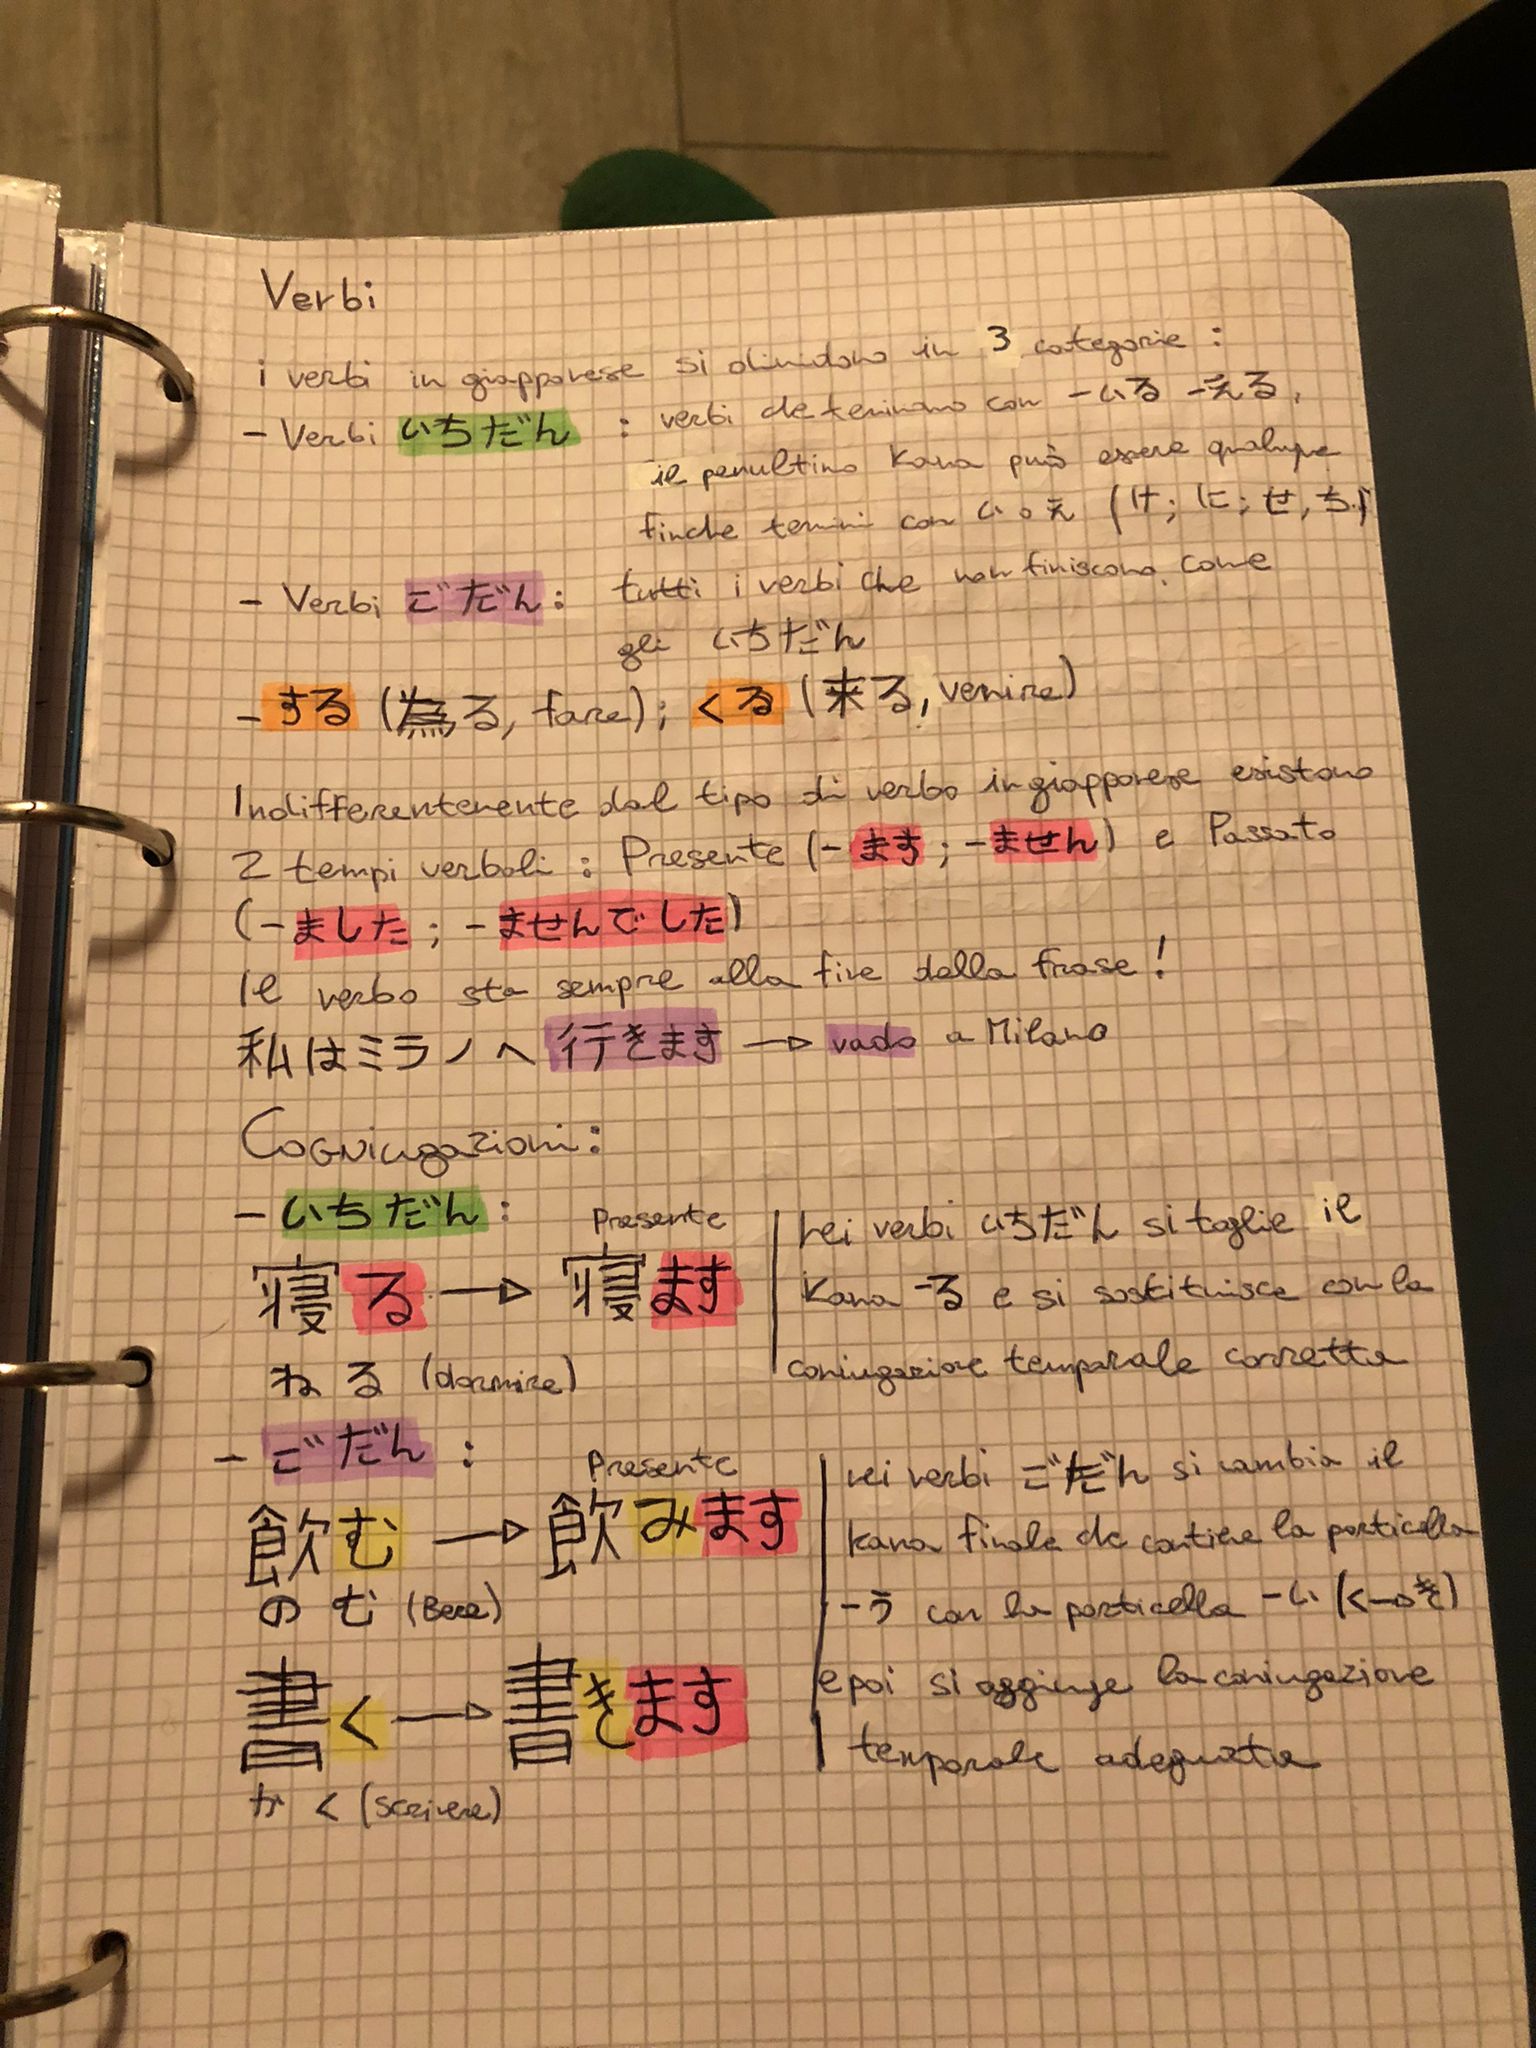 Verbi
i verbi in giapponese si dividono in 3 categorie :
- Verbi いちだん : verbi che terminano con -いる -える,
il penultimo Kana può essere qualunque
finche termini con い o え (け; に; せ, ち)
- Verbi ごだん : tutti i verbi che non finiscono come
gli いちだん
- する (為る, fare); くる (来る, venire)
Indifferentemente dal tipo di verbo in giapponese esistono
2 tempi verbali : Presente (-ます ; -ません) e Passato
(-ました ; -ませんでした)
Il verbo sta sempre alla fine della frase!
私はミラノへ行きます → vado a Milano
Cogniugazioni:
- いちだん :
Presente
寝る → 寝ます
ねる (dormire)
Nei verbi いちだん si toglie il
Kana -る e si sostituisce con la
coniugazione temporale corretta
- ごだん :
Presente
飲む → 飲みます
のむ (Bere)
書く → 書きます
かく (scrivere)
nei verbi ごだん si cambia il
kana finale che contiene la particella
-う con la particella -い (く→き)
e poi si aggiunge la coniugazione
temporale adeguata